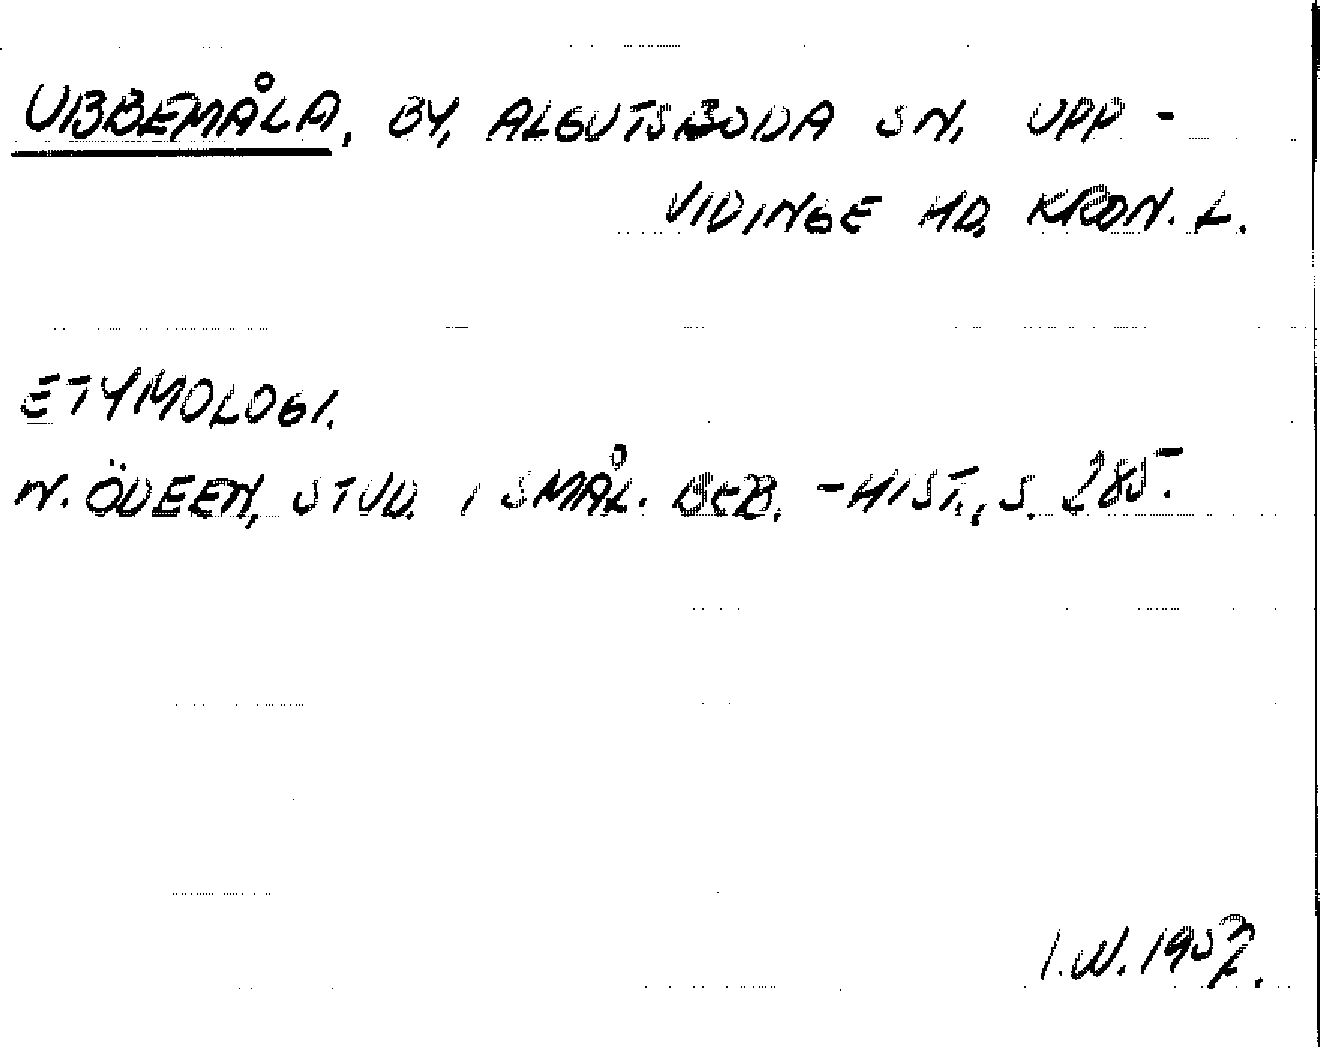 UBBEMÅLA, BY, ALGUTSBODA SN, UPP-
VIDINGE HD, KRON. L.
ETYMOLOGI.
N. ÖDEEN, STUD. I SMÅL. BEB. -HIST., S. 285.
I.N. 1957.